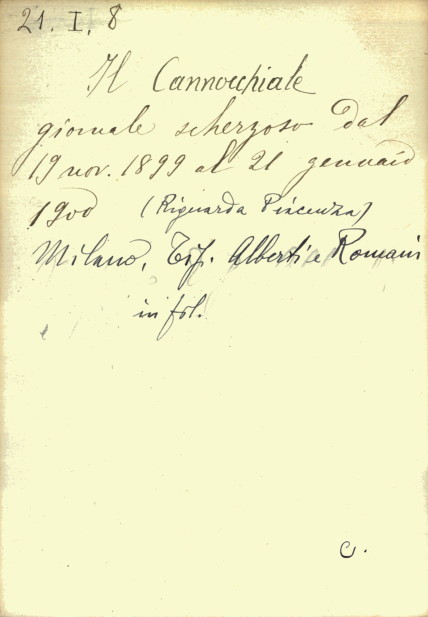 21. I. 8
Il Cannocchiale
giornale scherzoso dal
19 nov. 1899 al 21 gennaio
1900 (Riguarda Piacenza)
Milano, Tip. Alberti e Romani
in fol.
C.